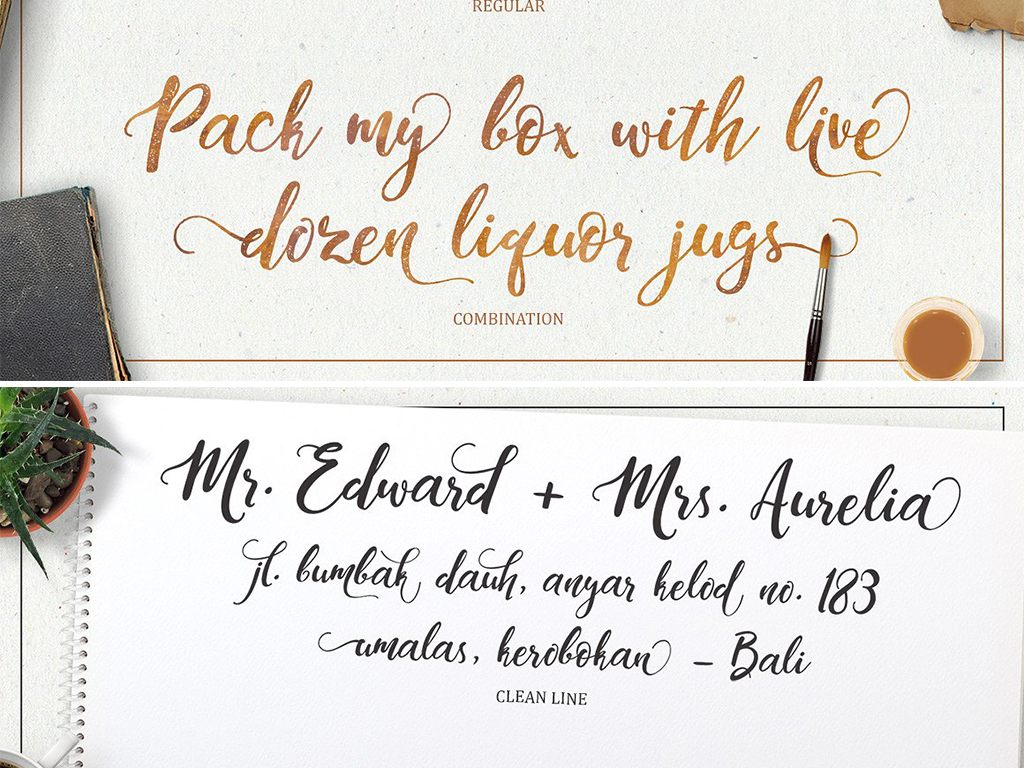 REGULAR
Pack my box with live
dozen liquor jugs
COMBINATION
Mr. Edward + Mrs. Aurelia
jl. bumbak dauh, anyar kelod no. 183
umalas, kerobokan - Bali
CLEAN LINE